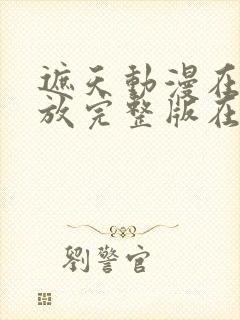 遮天動漫在
放完整版在
劉警官